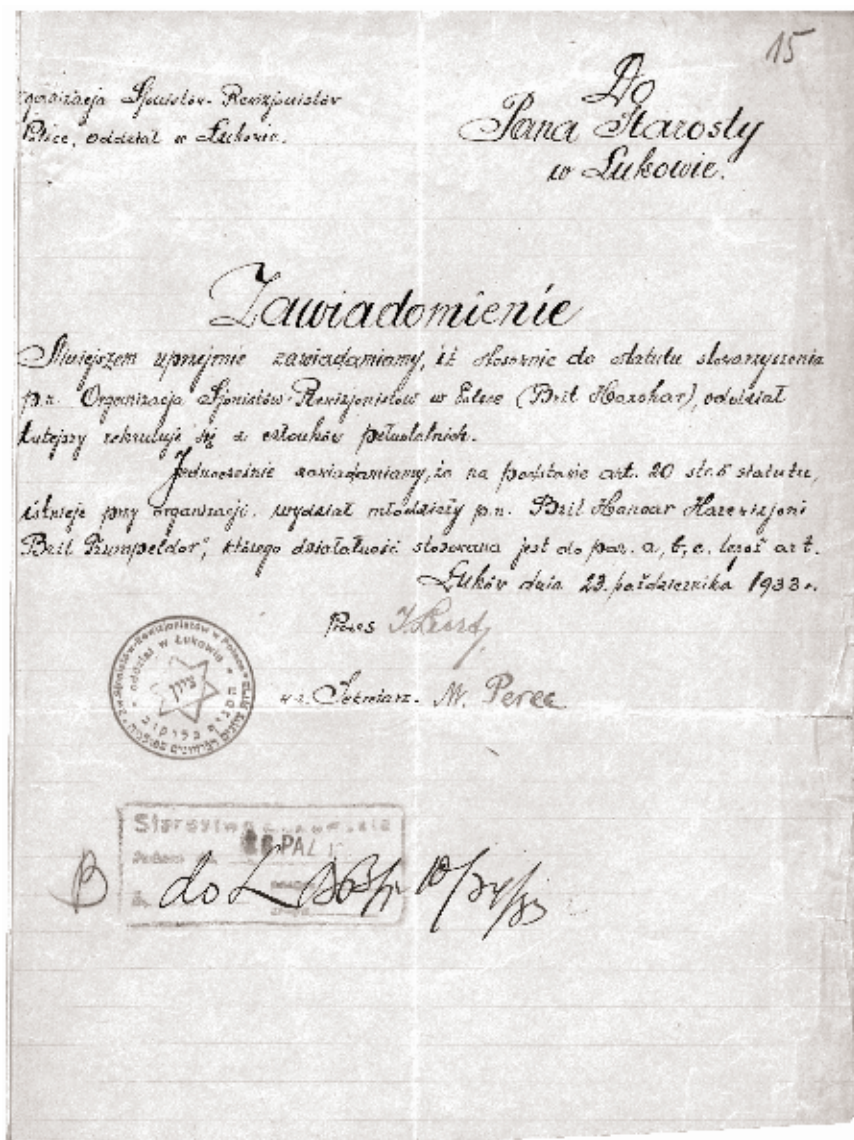 15
Do
Pana Starosty
w Łukowie.
Organizacja Sjonistów-Rewizjonistów
Polsce, oddział w Łukowie.
Zawiadomienie
Niniejszem uprzejmie zawiadamiamy, iż stosownie do statutu stowarzyszenia
p.n. Organizacja Sjonistów-Rewizjonistów w Polsce (Brit Hazohar), oddział
tutejszy rekrutuje się z członków pełnoletnich.
Jednocześnie zawiadamiamy, że na podstawie art. 20 statutu,
istnieje przy organizacji wydział młodzieży p.n. Brit Hanoar Harewizjoni
Brit Trumpeldor", którego działalność stosowana jest do par. a, b, c, tegoż art.
Łuków dnia 23. października 1933 r.
Prezes
w z. Sekretarz. M. Perec
Sjonistów-Rewizjonistów w Polsce
oddział w Łukowie
ציון
Starostwo
PAŹ
B do